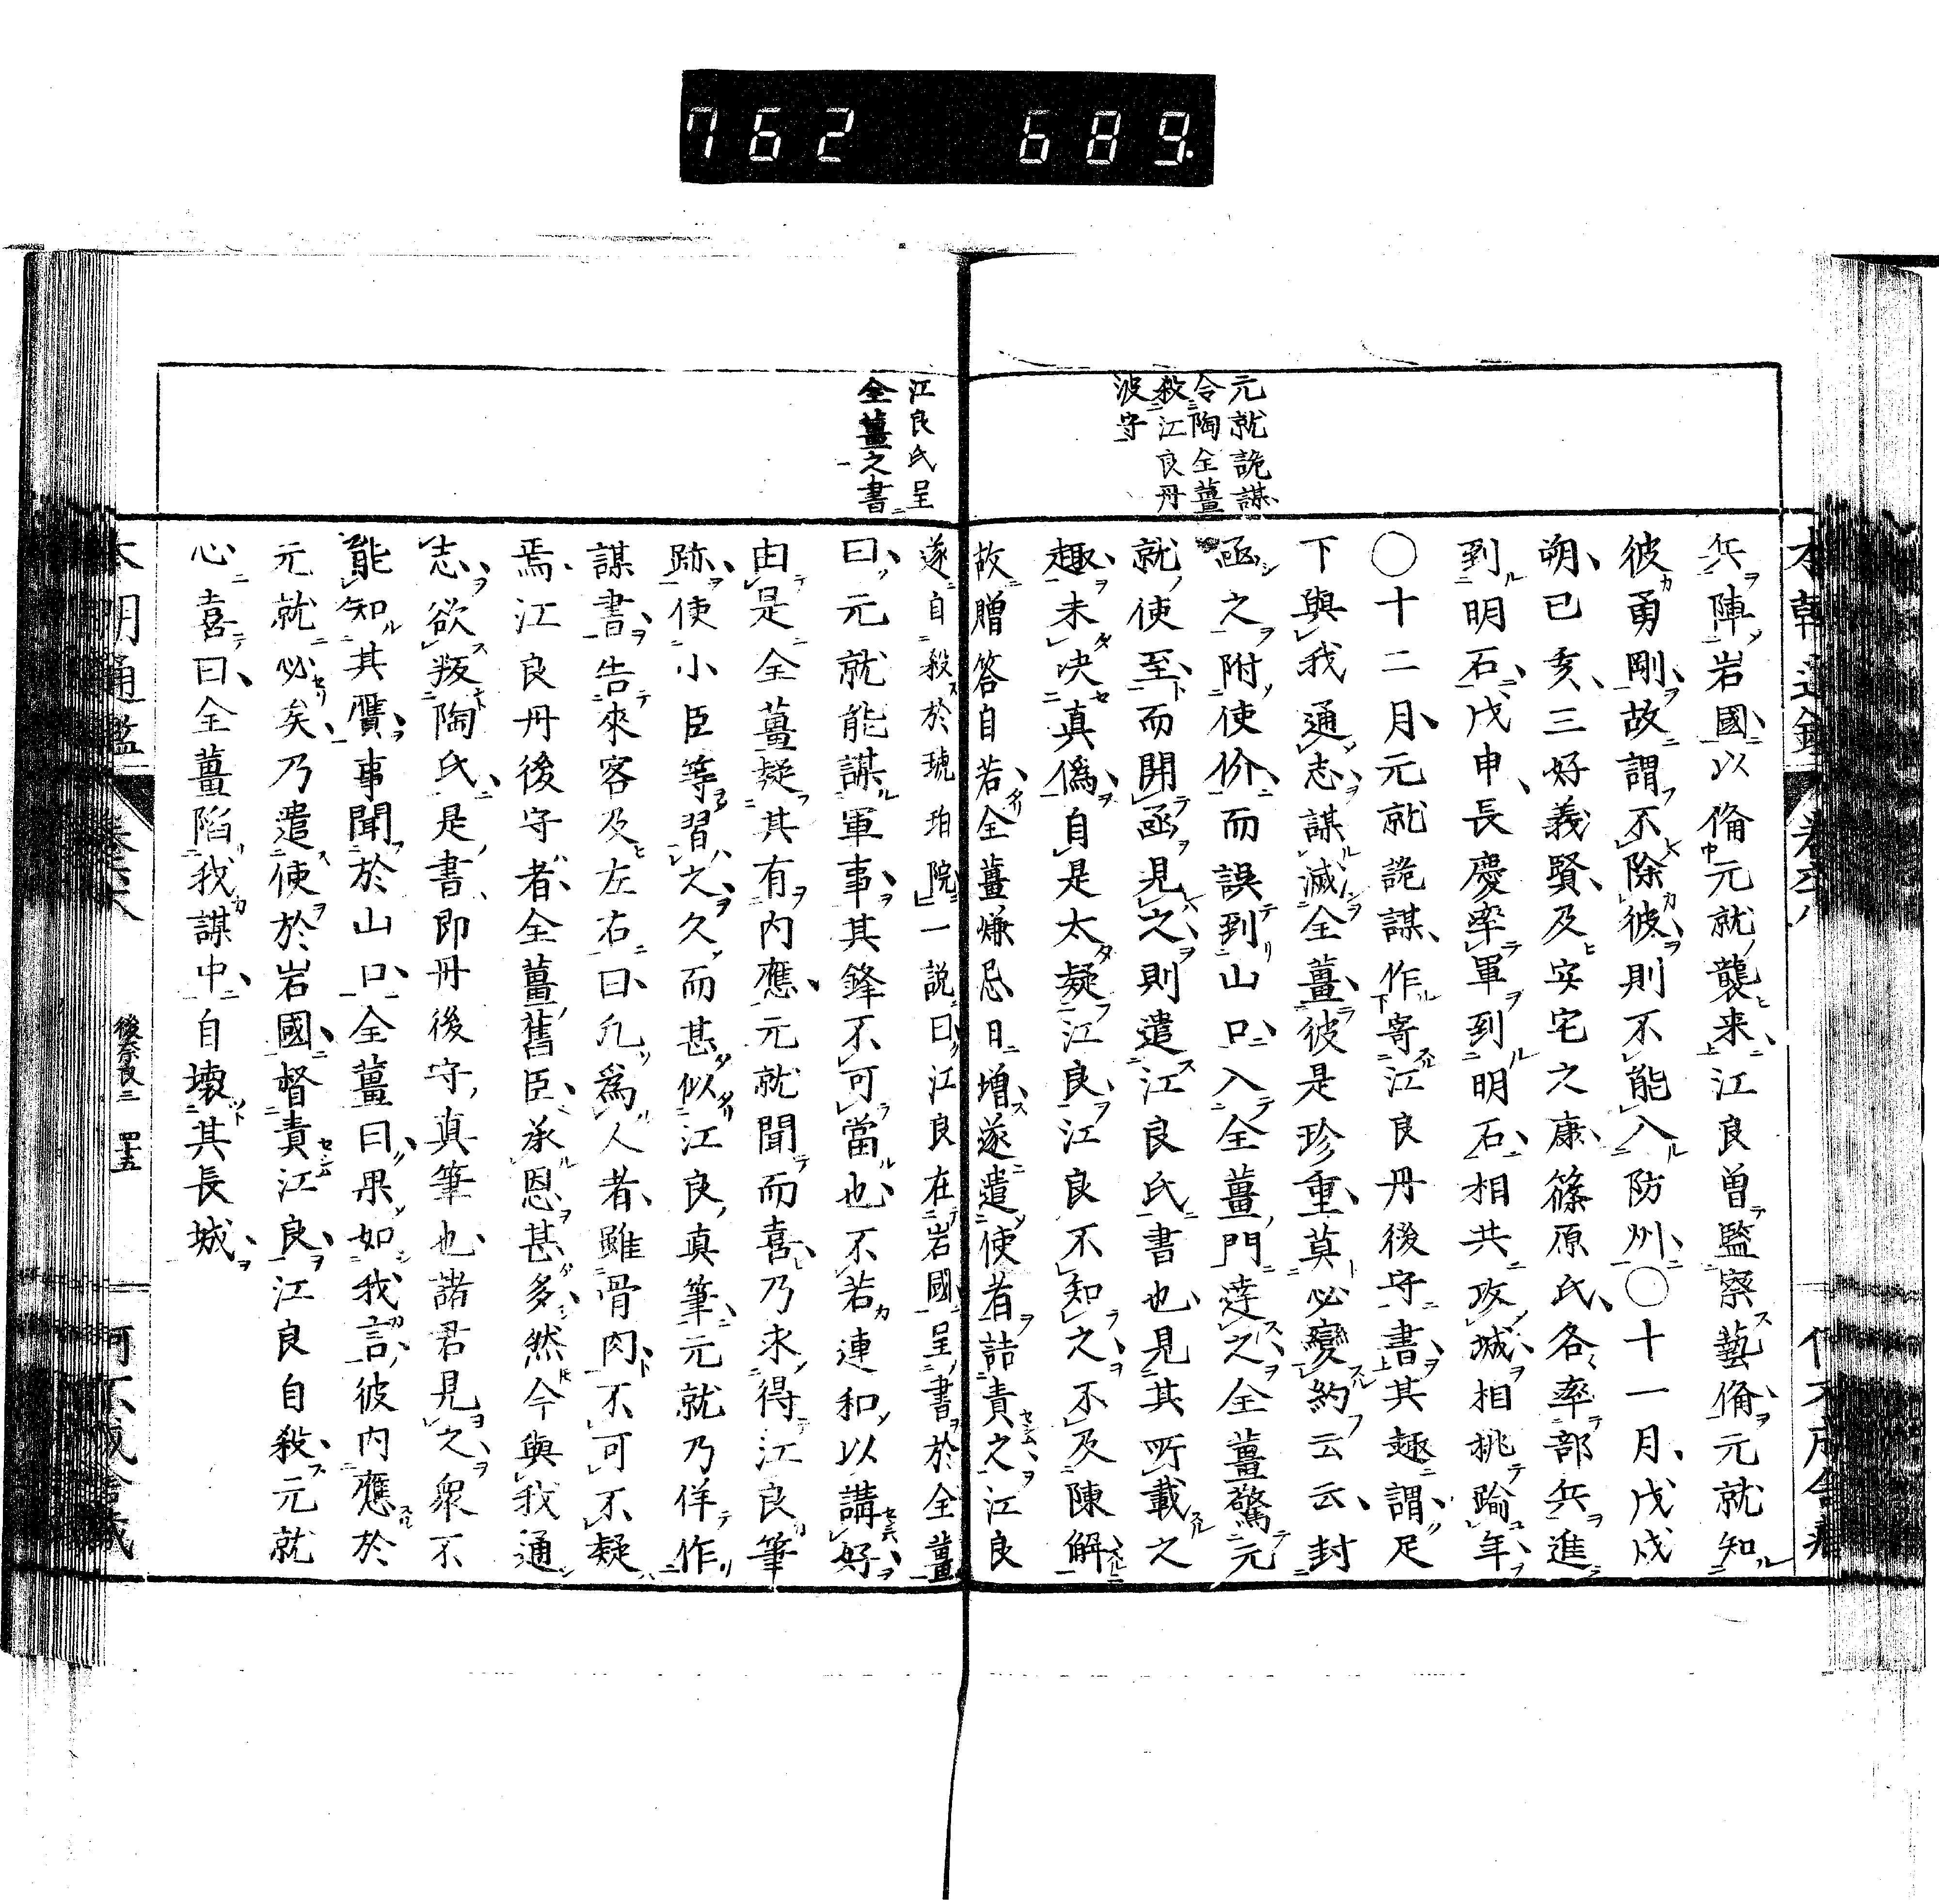 762 689
元就詭謀
令陶全薑
殺江良丹
波守
兵陣岩國以俻元就襲来江良曽監察藝俻元就知
彼勇剛故謂不除彼則不能入防州〇十一月戊戌
朔己亥三好義賢及安宅之康篠原氏各率部兵進
到明石戊申長慶率軍到明石相共攻城相挑踰年
〇十二月元就詭謀作寄江良丹後守書其趣謂足
下與我通志謀滅全薑彼是珍重莫必變約云云封
函之附使价而誤到山口入全薑門達之全薑驚元
就使至而開函見之則遣江良氏書也見其所載之
趣未决真僞自是太疑江良江良不知之不及陳解
故贈答自若全薑嫌忌日增遂遣使者詰責之江良
江良氏呈
全薑之書
遂自殺於琥珀院一説曰江良在岩國呈書於全薑
曰元就能謀軍事其鋒不可當也不若連和以講好
由是全薑疑其有内應元就聞而喜乃求得江良筆
跡使小臣等習之久而甚似江良真筆元就乃佯作
謀書告來客及左右曰凢爲人者雖骨肉不可不疑
焉江良丹後守者全薑舊臣承恩甚多然今與我通
志欲叛陶氏是書即丹後守真筆也諸君見之衆不
能知其贋事聞於山口全薑曰果如我言彼内應於
元就必矣乃遣使於岩國督責江良江良自殺元就
心喜曰全薑陷我謀中自壊其長城
後奈良三 四十五